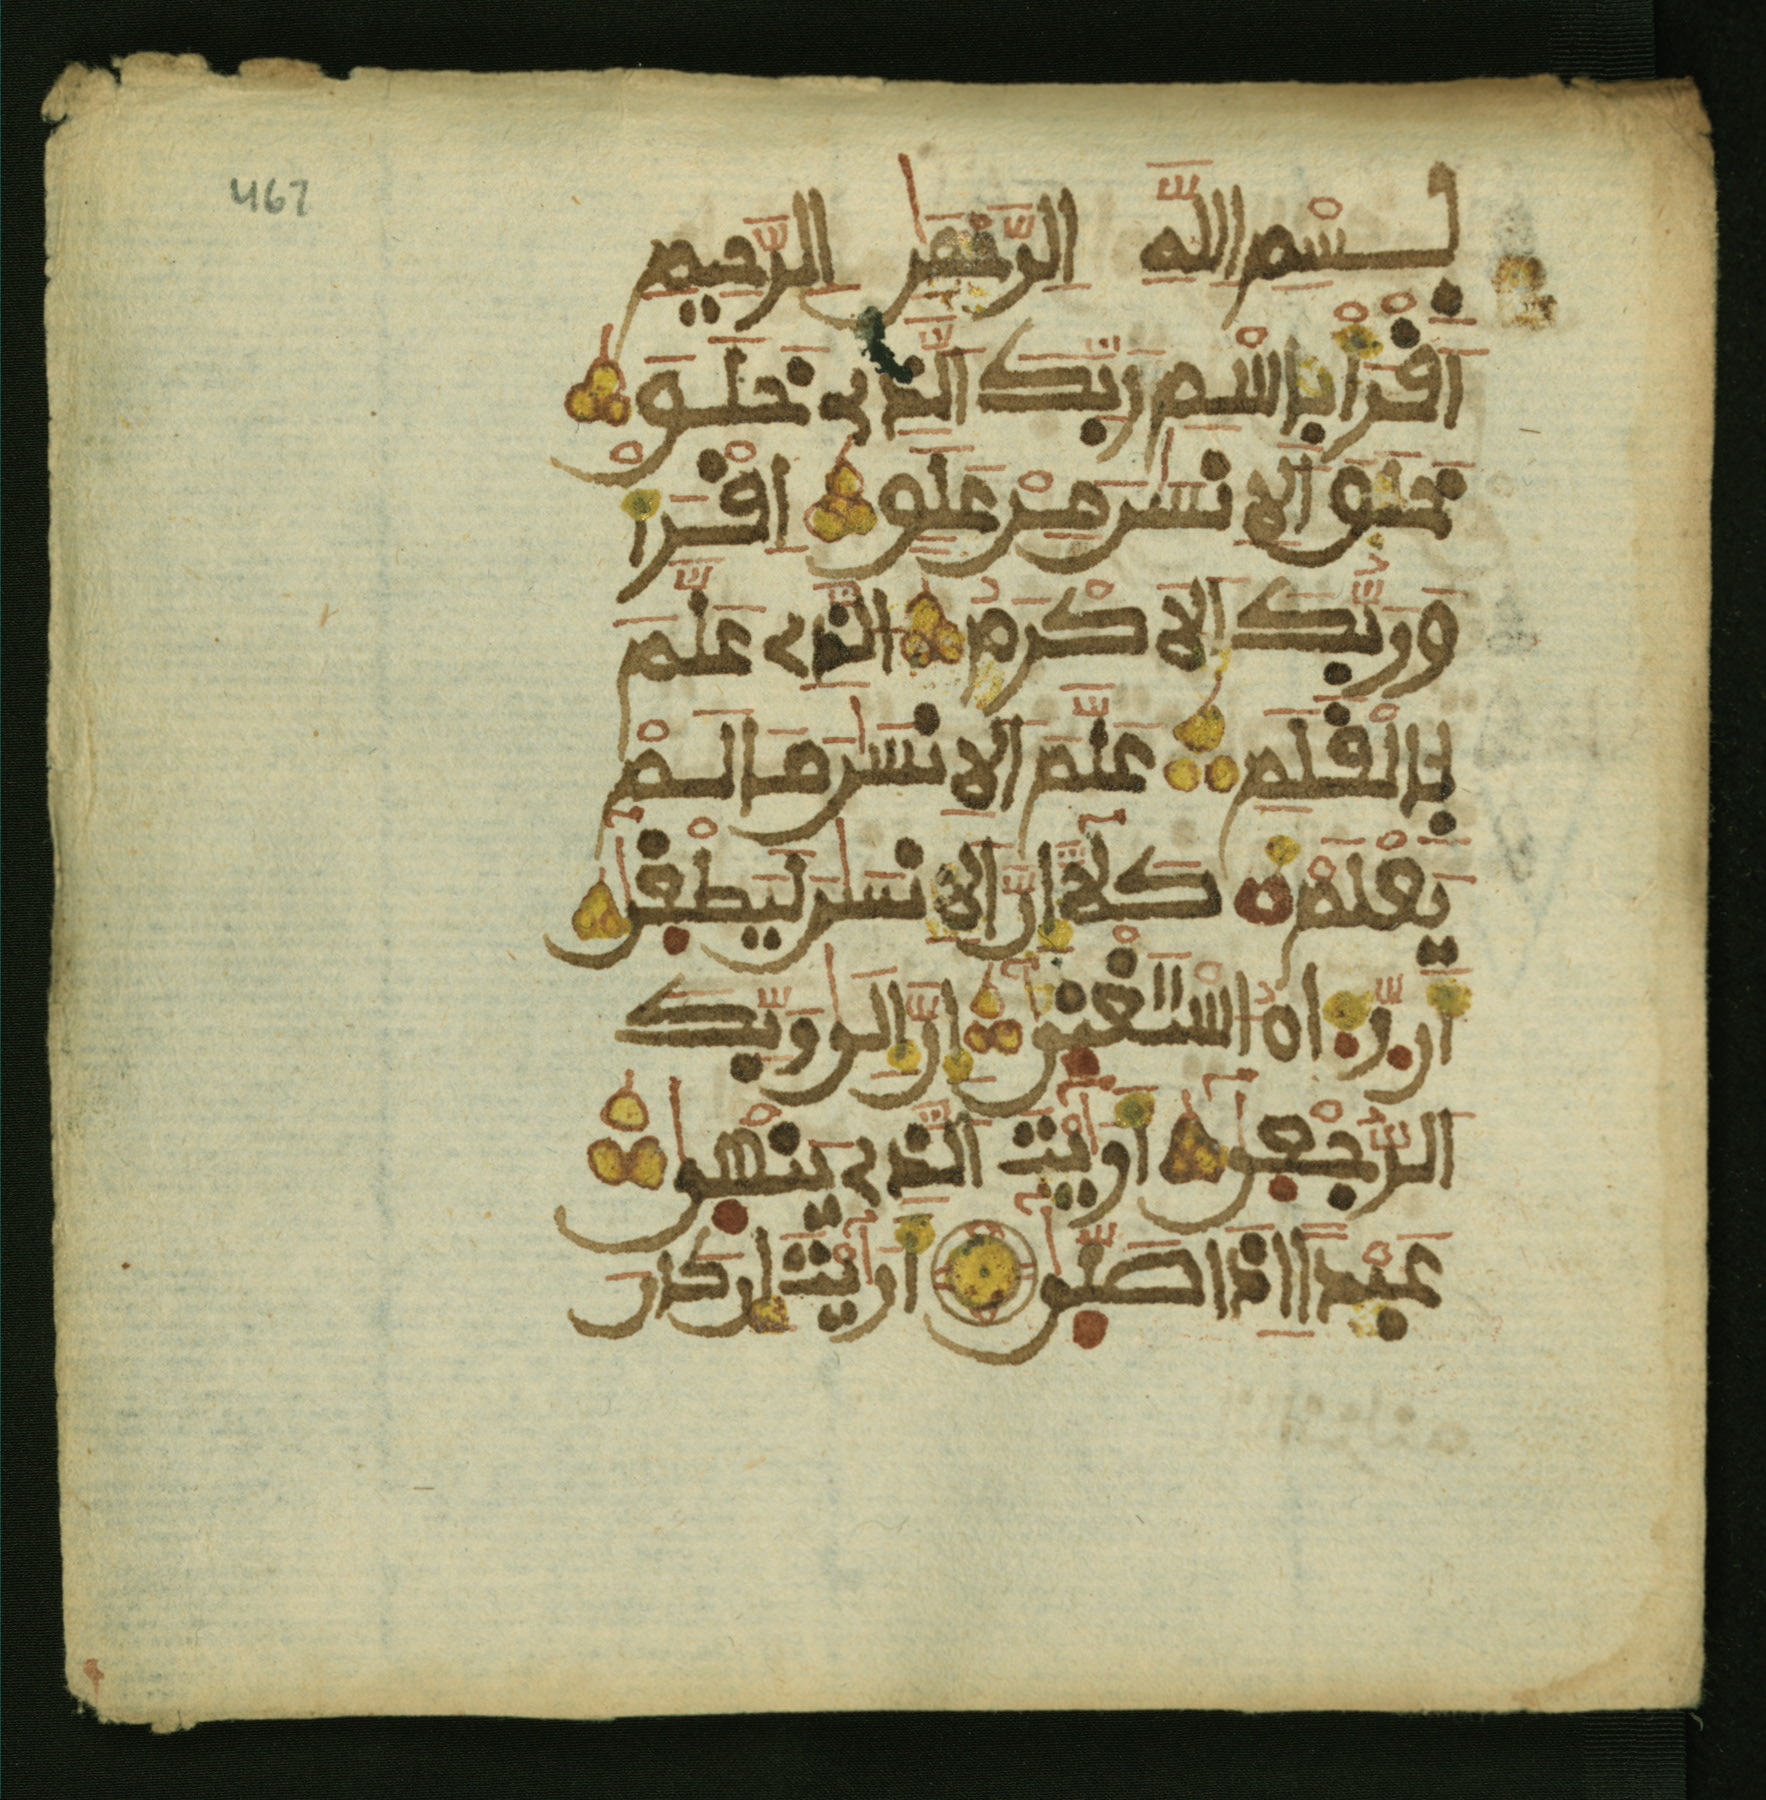 467
بِسْمِ اللَّهِ الرَّحْمَٰنِ الرَّحِيمِ
اقْرَأْ بِاسْمِ رَبِّكَ الَّذِي خَلَقَ
خَلَقَ الْإِنسَٰنَ مِنْ عَلَقٍ اقْرَأْ
وَرَبُّكَ الْأَكْرَمُ الَّذِي عَلَّمَ
بِالْقَلَمِ عَلَّمَ الْإِنسَٰنَ مَا لَمْ
يَعْلَمْ كَلَّا إِنَّ الْإِنسَٰنَ لَيَطْغَىٰ
أَن رَّءَاهُ اسْتَغْنَىٰ إِنَّ إِلَىٰ رَبِّكَ
الرُّجْعَىٰ أَرَءَيْتَ الَّذِي يَنْهَىٰ
عَبْدًا إِذَا صَلَّىٰ أَرَءَيْتَ إِن كَانَ